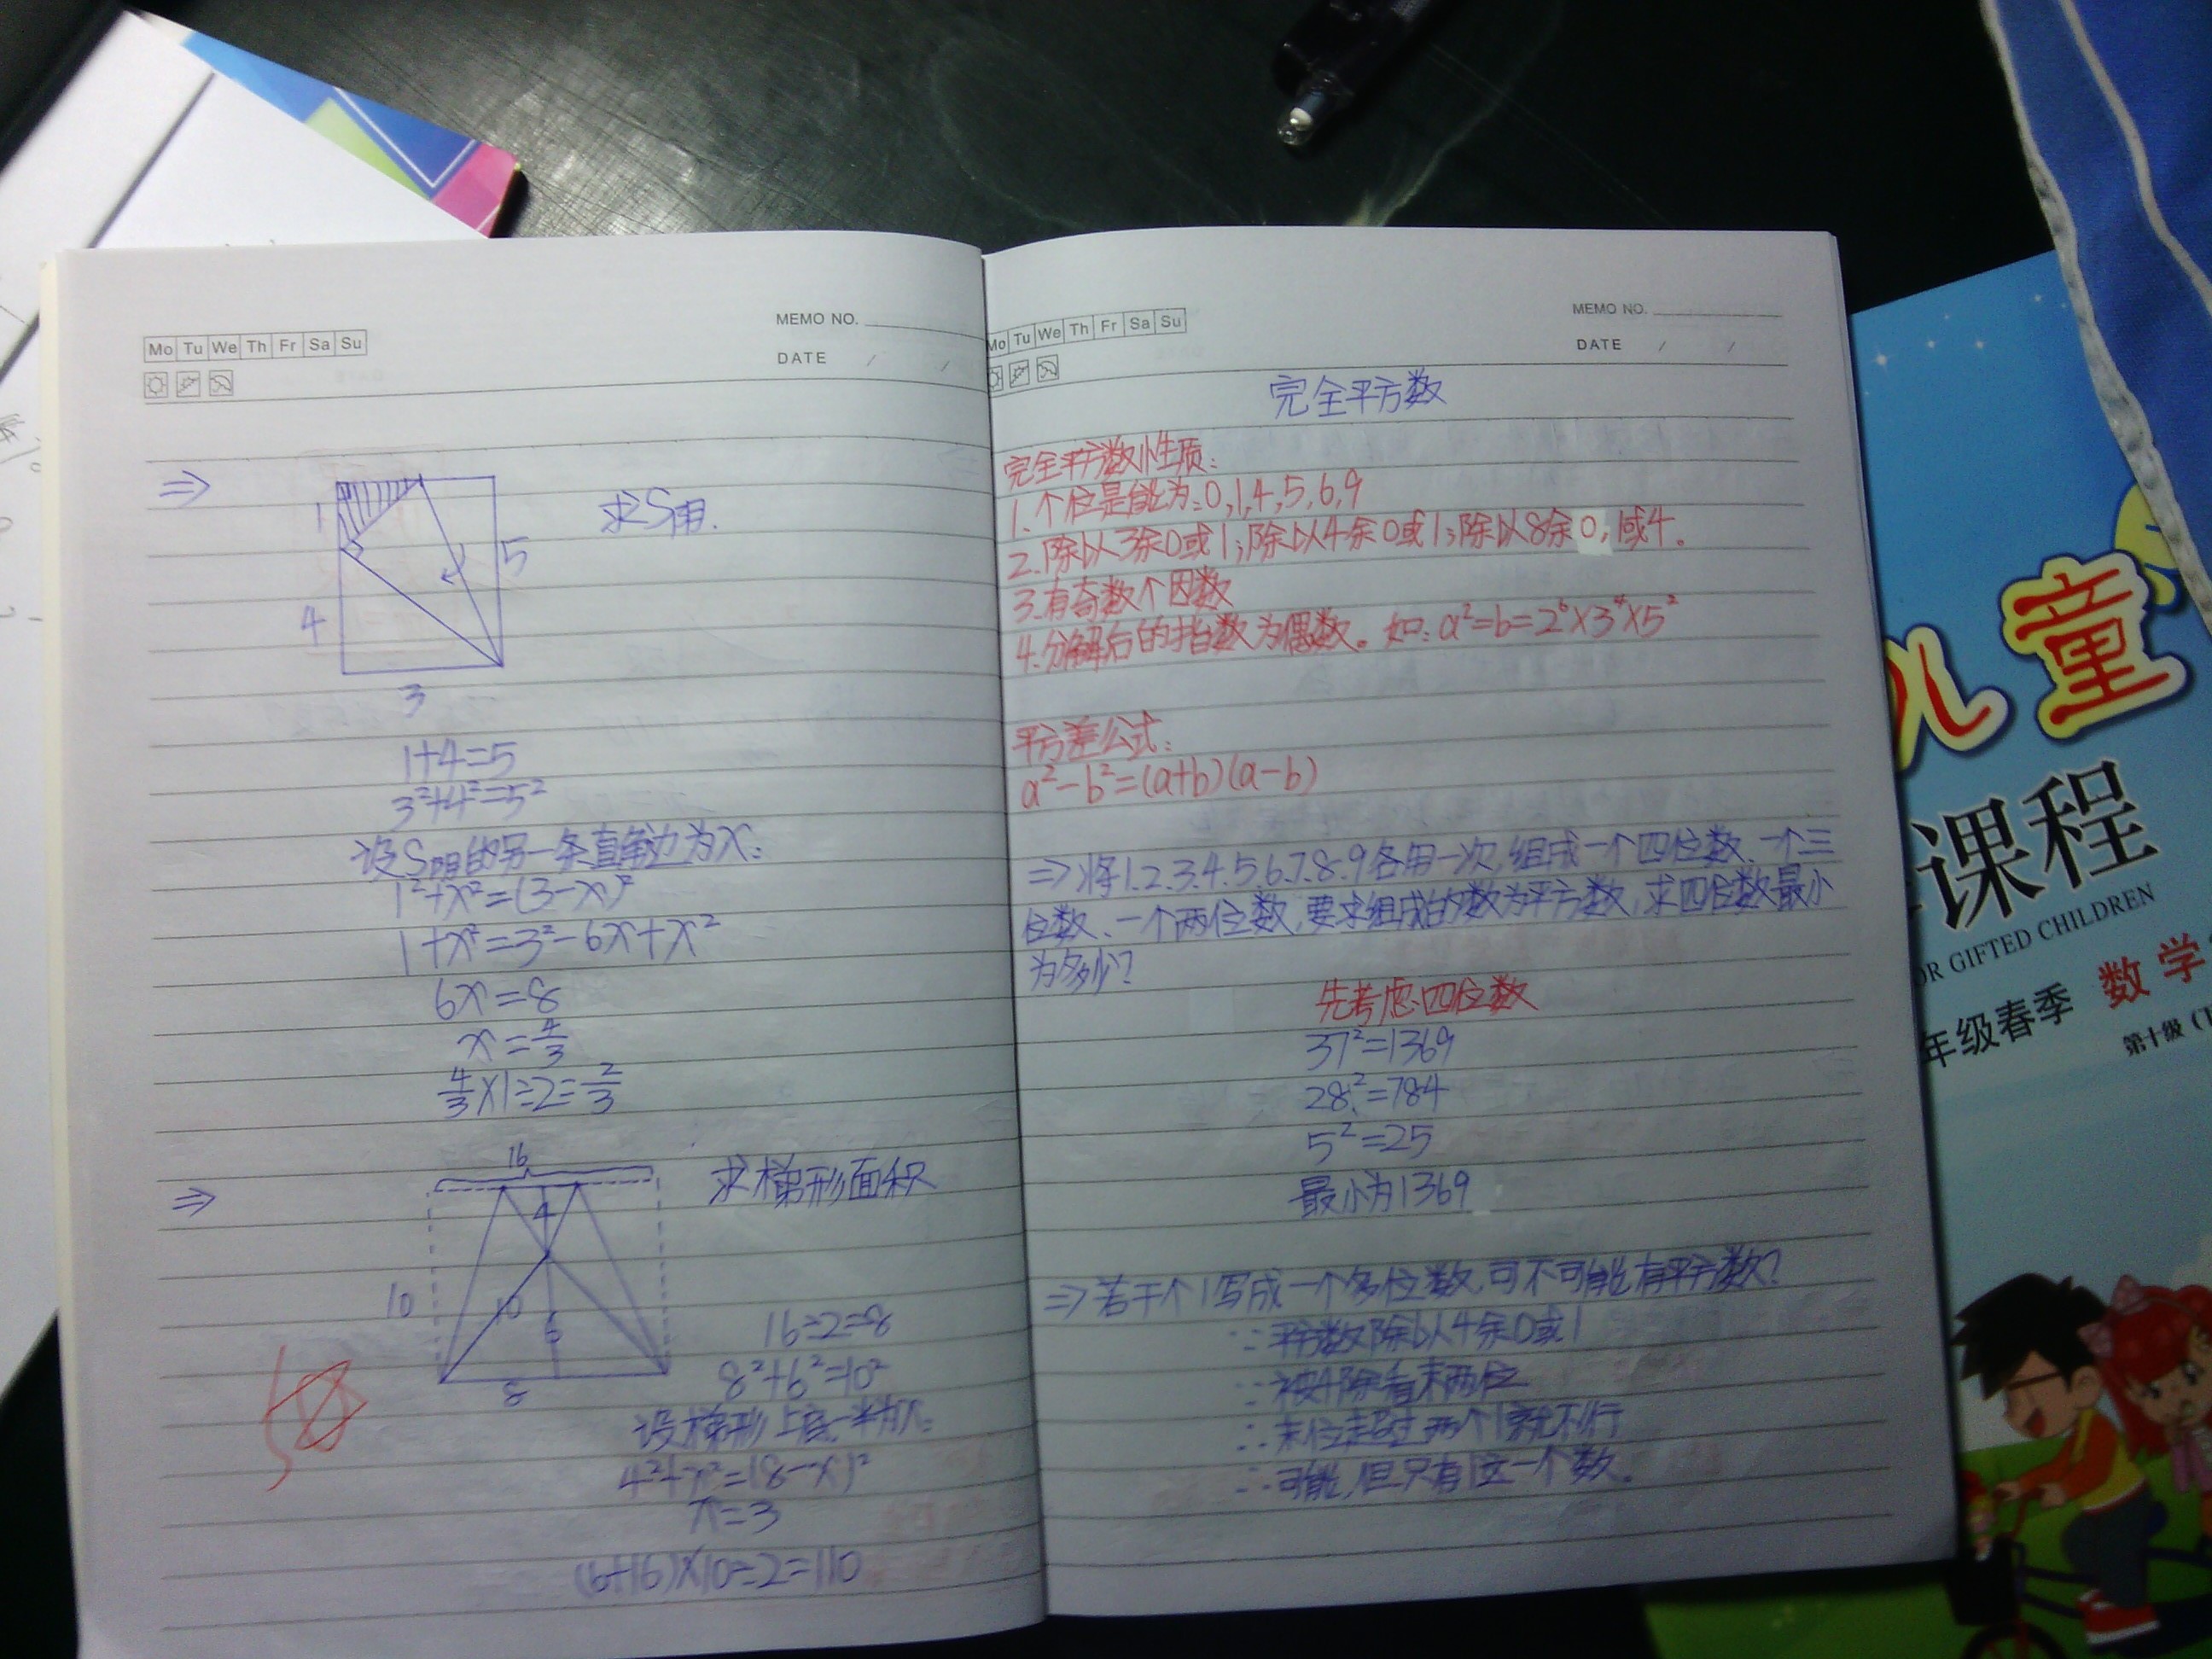 Mo Tu We Th Fr Sa Su
MEMO NO.
DATE / /
⇒
求S阴.
1
5
4
3
1+4=5
3²+4²=5²
设S阴的另一条直角边为x:
1²+x²=(3-x)²
1+x²=3²-6x+x²
6x=8
x=4/3
4/3×1÷2=2/3
⇒
16
求梯形面积
4
10
10
6
8
16÷2=8
8²+6²=10²
设梯形上底一半为x:
4²+x²=(8-x)²
x=3
(6+16)×10÷2=110
Mo Tu We Th Fr Sa Su
MEMO NO.
DATE / /
完全平方数
完全平方数性质:
1.个位是能为:0,1,4,5,6,9
2.除以3余0或1;除以4余0或1;除以8余0,1或4。
3.有奇数个因数
4.分解后的指数为偶数。如:a²=b=2⁶×3⁴×5²
平方差公式:
a²-b²=(a+b)(a-b)
⇒将1.2.3.4.5.6.7.8.9各用一次,组成一个四位数、一个三
位数、一个两位数,要求组成的数为平方数,求四位数最小
为多少?
先考虑四位数
37²=1369
28²=784
5²=25
最小为1369
⇒若干个1写成一个多位数,可不可能有平方数?
∵平方数除以4余0或1
∵被4除看末两位
∴末位超过两个1就不行
∴可能,但只有1这一个数。
儿童
课程
OR GIFTED CHILDREN
年级春季 数学
第十级